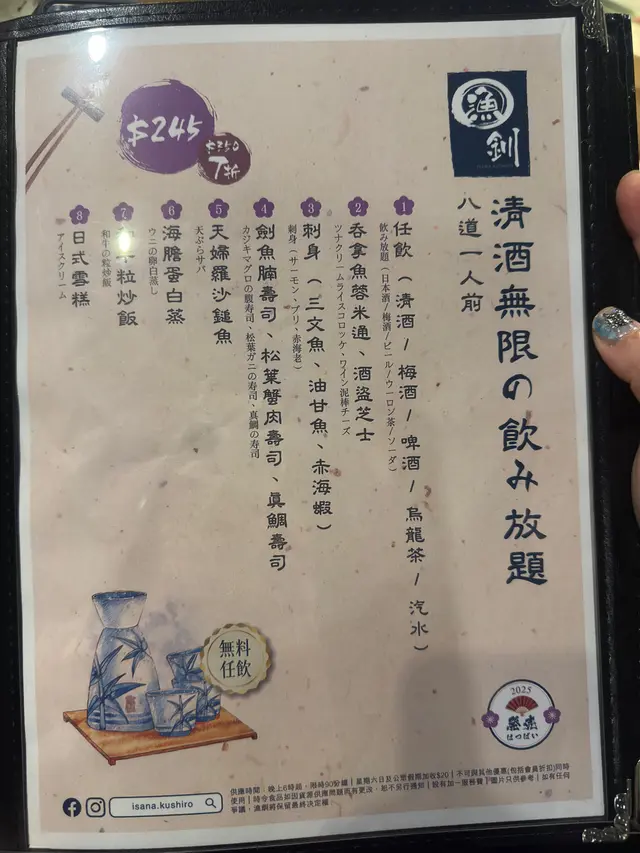 漁
釧
清酒無限の飲み放題
八道一人前
$245
$350
7折
1
任飲（清酒/梅酒/啤酒/烏龍茶/汽水）
飲み放題（日本酒/梅酒/ビール/ウーロン茶/ソーダ）
2
吞拿魚蓉米通、酒盜芝士
ツナクリームライスコロッケ、ワイン泥棒チーズ
3
刺身（三文魚、油甘魚、赤海蝦）
刺身（サーモン、ブリ、赤海老）
4
劍魚腩壽司、松葉蟹肉壽司、真鯛壽司
カジキマグロの腹寿司、松葉ガニの寿司、真鯛の寿司
5
天婦羅沙鎚魚
天ぷらサバ
6
海膽蛋白蒸
ウニの卵白蒸し
7
粒炒飯
和牛の粒炒飯
8
日式雪糕
アイスクリーム
無料
任飲
2025
はつばい
isana.kushiro
供應時間：晚上6時後，限時90分鐘｜星期六日及公眾假期加收$20｜不可與其他優惠(包括會員折扣)同時
使用｜時令食品如因貨源供應問題而有更改，恕不另行通知｜設有加一服務費｜圖片只供參考｜如有任何
爭議，漁釧將保留最終決定權